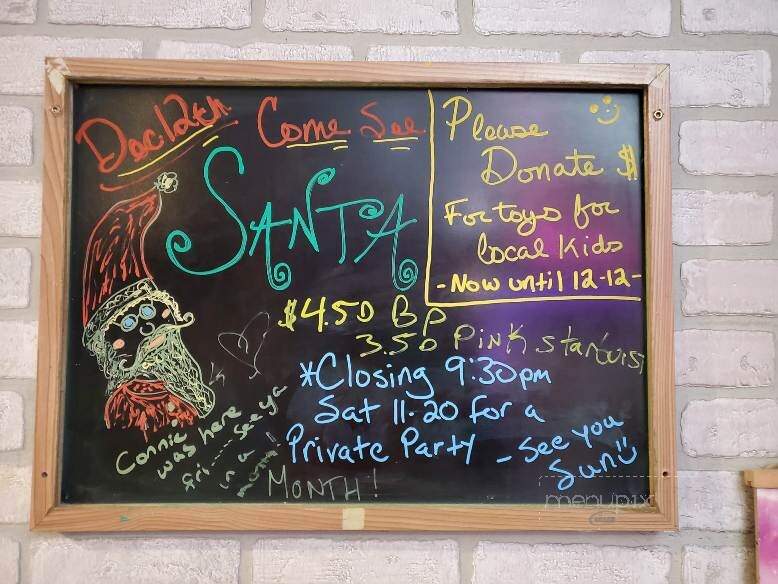 Dec 12th Come See
SANTA
Please
Donate $
For toys for
local Kids
- Now until 12-12-
$4.50 BP
3.50 Pink Starburst
*Closing 9:30pm
Sat 11-20 for a
Private Party - See you
Sun
Connie
was here
Fri---- see ya
in a
month!
MONTH!
menupix